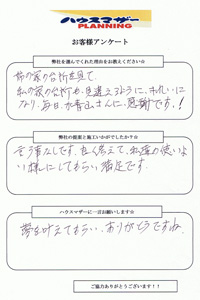 ハウスマザー
PLANNING
お客様アンケート
弊社を選んでくれた理由をお教えください☆
姉の家の台所を見て、
私の家の台所も、見違えるように、きれいに
なり、毎日が青山さんに、感謝です、!
弊社の提案と施工いかがでしたか？☆
言う事なしです。良く考えて、私達の使いよ
い様にしてもらい満足です。
ハウスマザーに一言お願いします☆
夢を叶えてもらい、ありがとうですね、
ご協力ありがとうございます！！